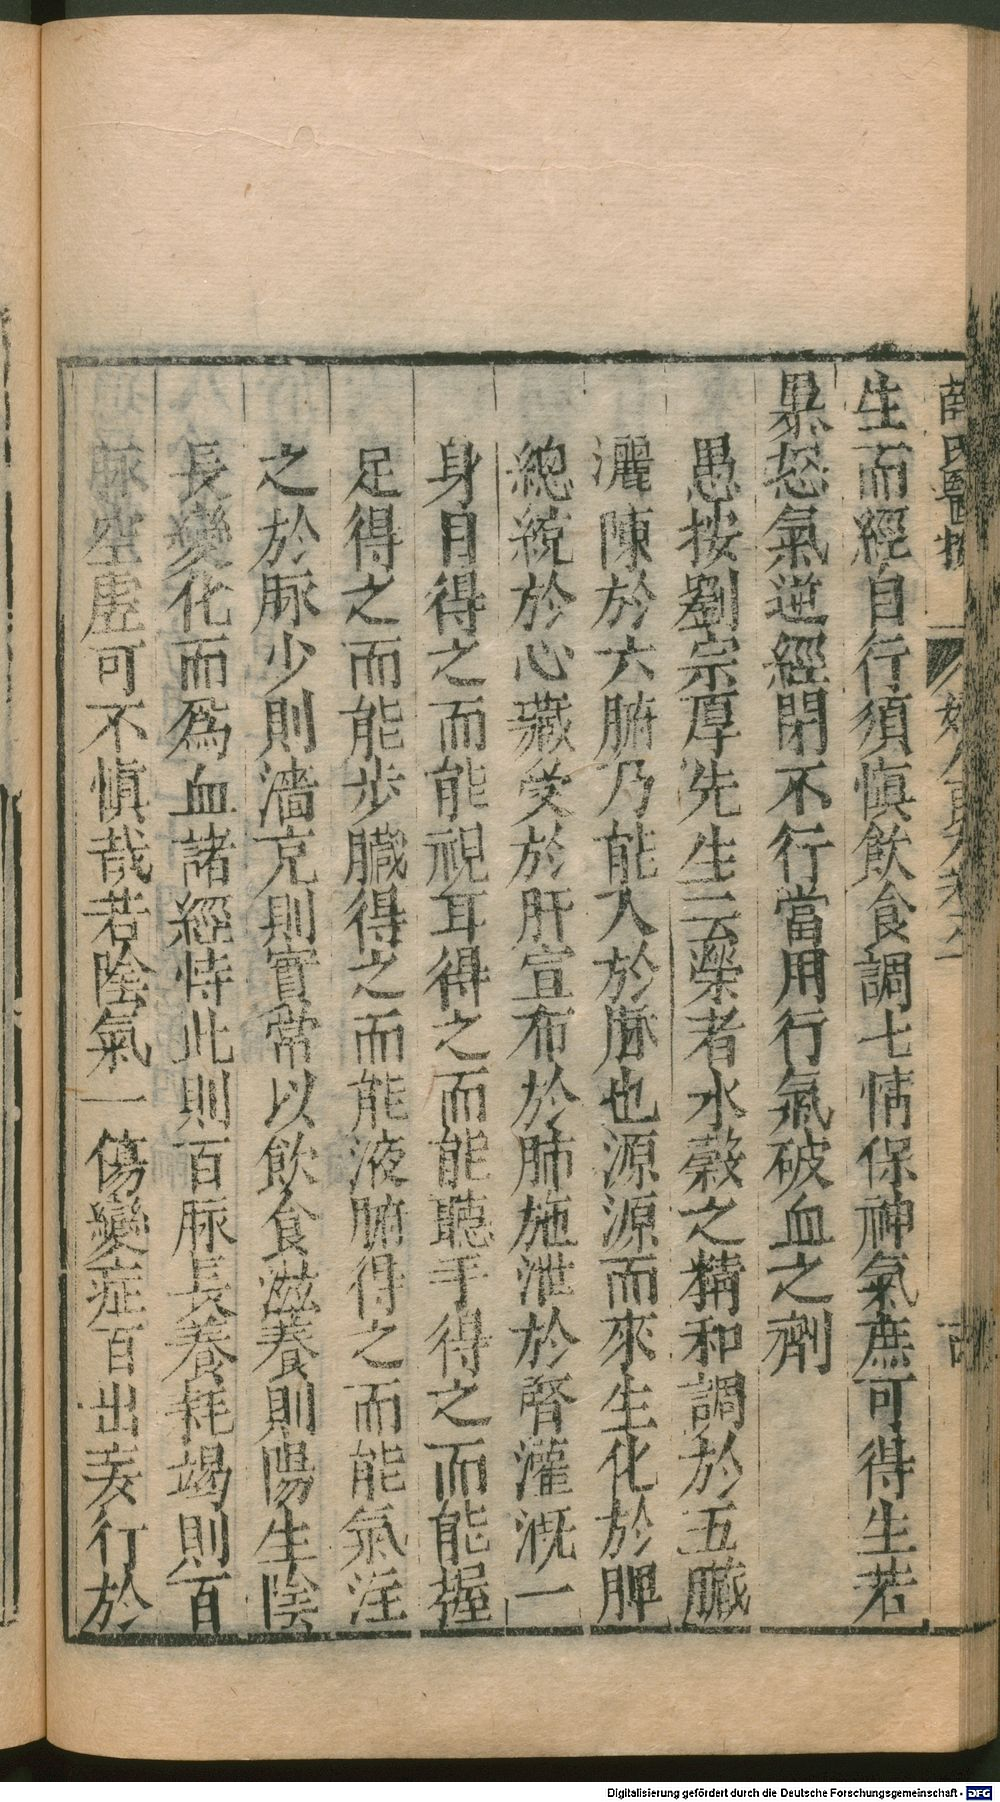 生而經自行須慎飲食調七情保神氣庶可得生若
暴怒氣逆經閉不行當用行氣破血之劑
愚按劉宗厚先生云榮者水穀之精和調於五臟
灑陳於六腑乃能入於脉也源源而來生化於脾
總統於心藏受於肝宣布於肺施泄於腎灌溉一
身目得之而能視耳得之而能聽手得之而能握
足得之而能步臟得之而能液腑得之而能氣注
之於脉少則濇充則實常以飲食滋養則陽生陰
長變化而爲血諸經恃此則百脉長養耗竭則百
脉空虛可不慎哉若陰氣一傷變症百出妄行於
Digitalisierung gefördert durch die Deutsche Forschungsgemeinschaft - DFG